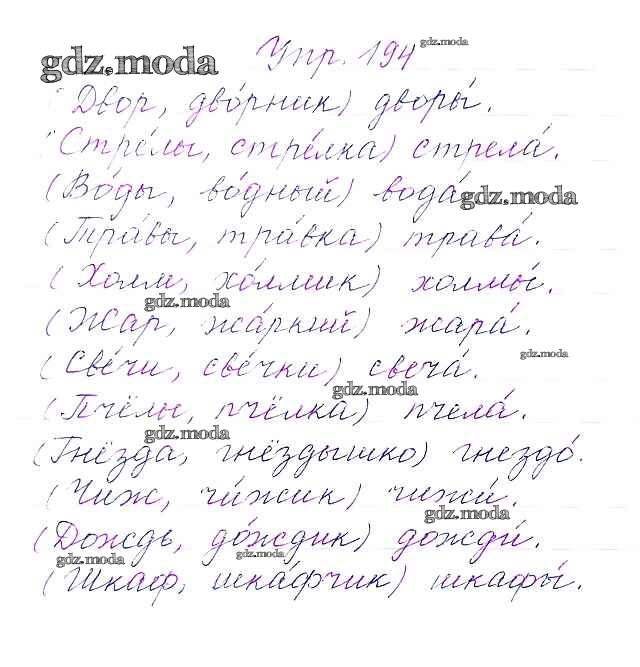 gdz.moda Упр. 194 gdz.moda
(Двор, дво́рник) дворы́.
(Стре́лы, стре́лка) стрела́.
(Во́ды, во́дный) вода́ gdz.moda
(Тра́вы, тра́вка) трава́.
(Холм, хо́лмик) холмы́.
gdz.moda
(Жар, жа́ркий) жара́.
(Све́чи, све́чки) свеча́. gdz.moda
gdz.moda
(Пчёлы, пчёлка) пчела́.
gdz.moda
(Гнёзда, гнёздышко) гнездо́.
(Чиж, чи́жик) чижи́.
gdz.moda
(Дождь, до́ждик) дожди́.
gdz.moda gdz.moda
(Шкаф, шка́фчик) шкафы́.